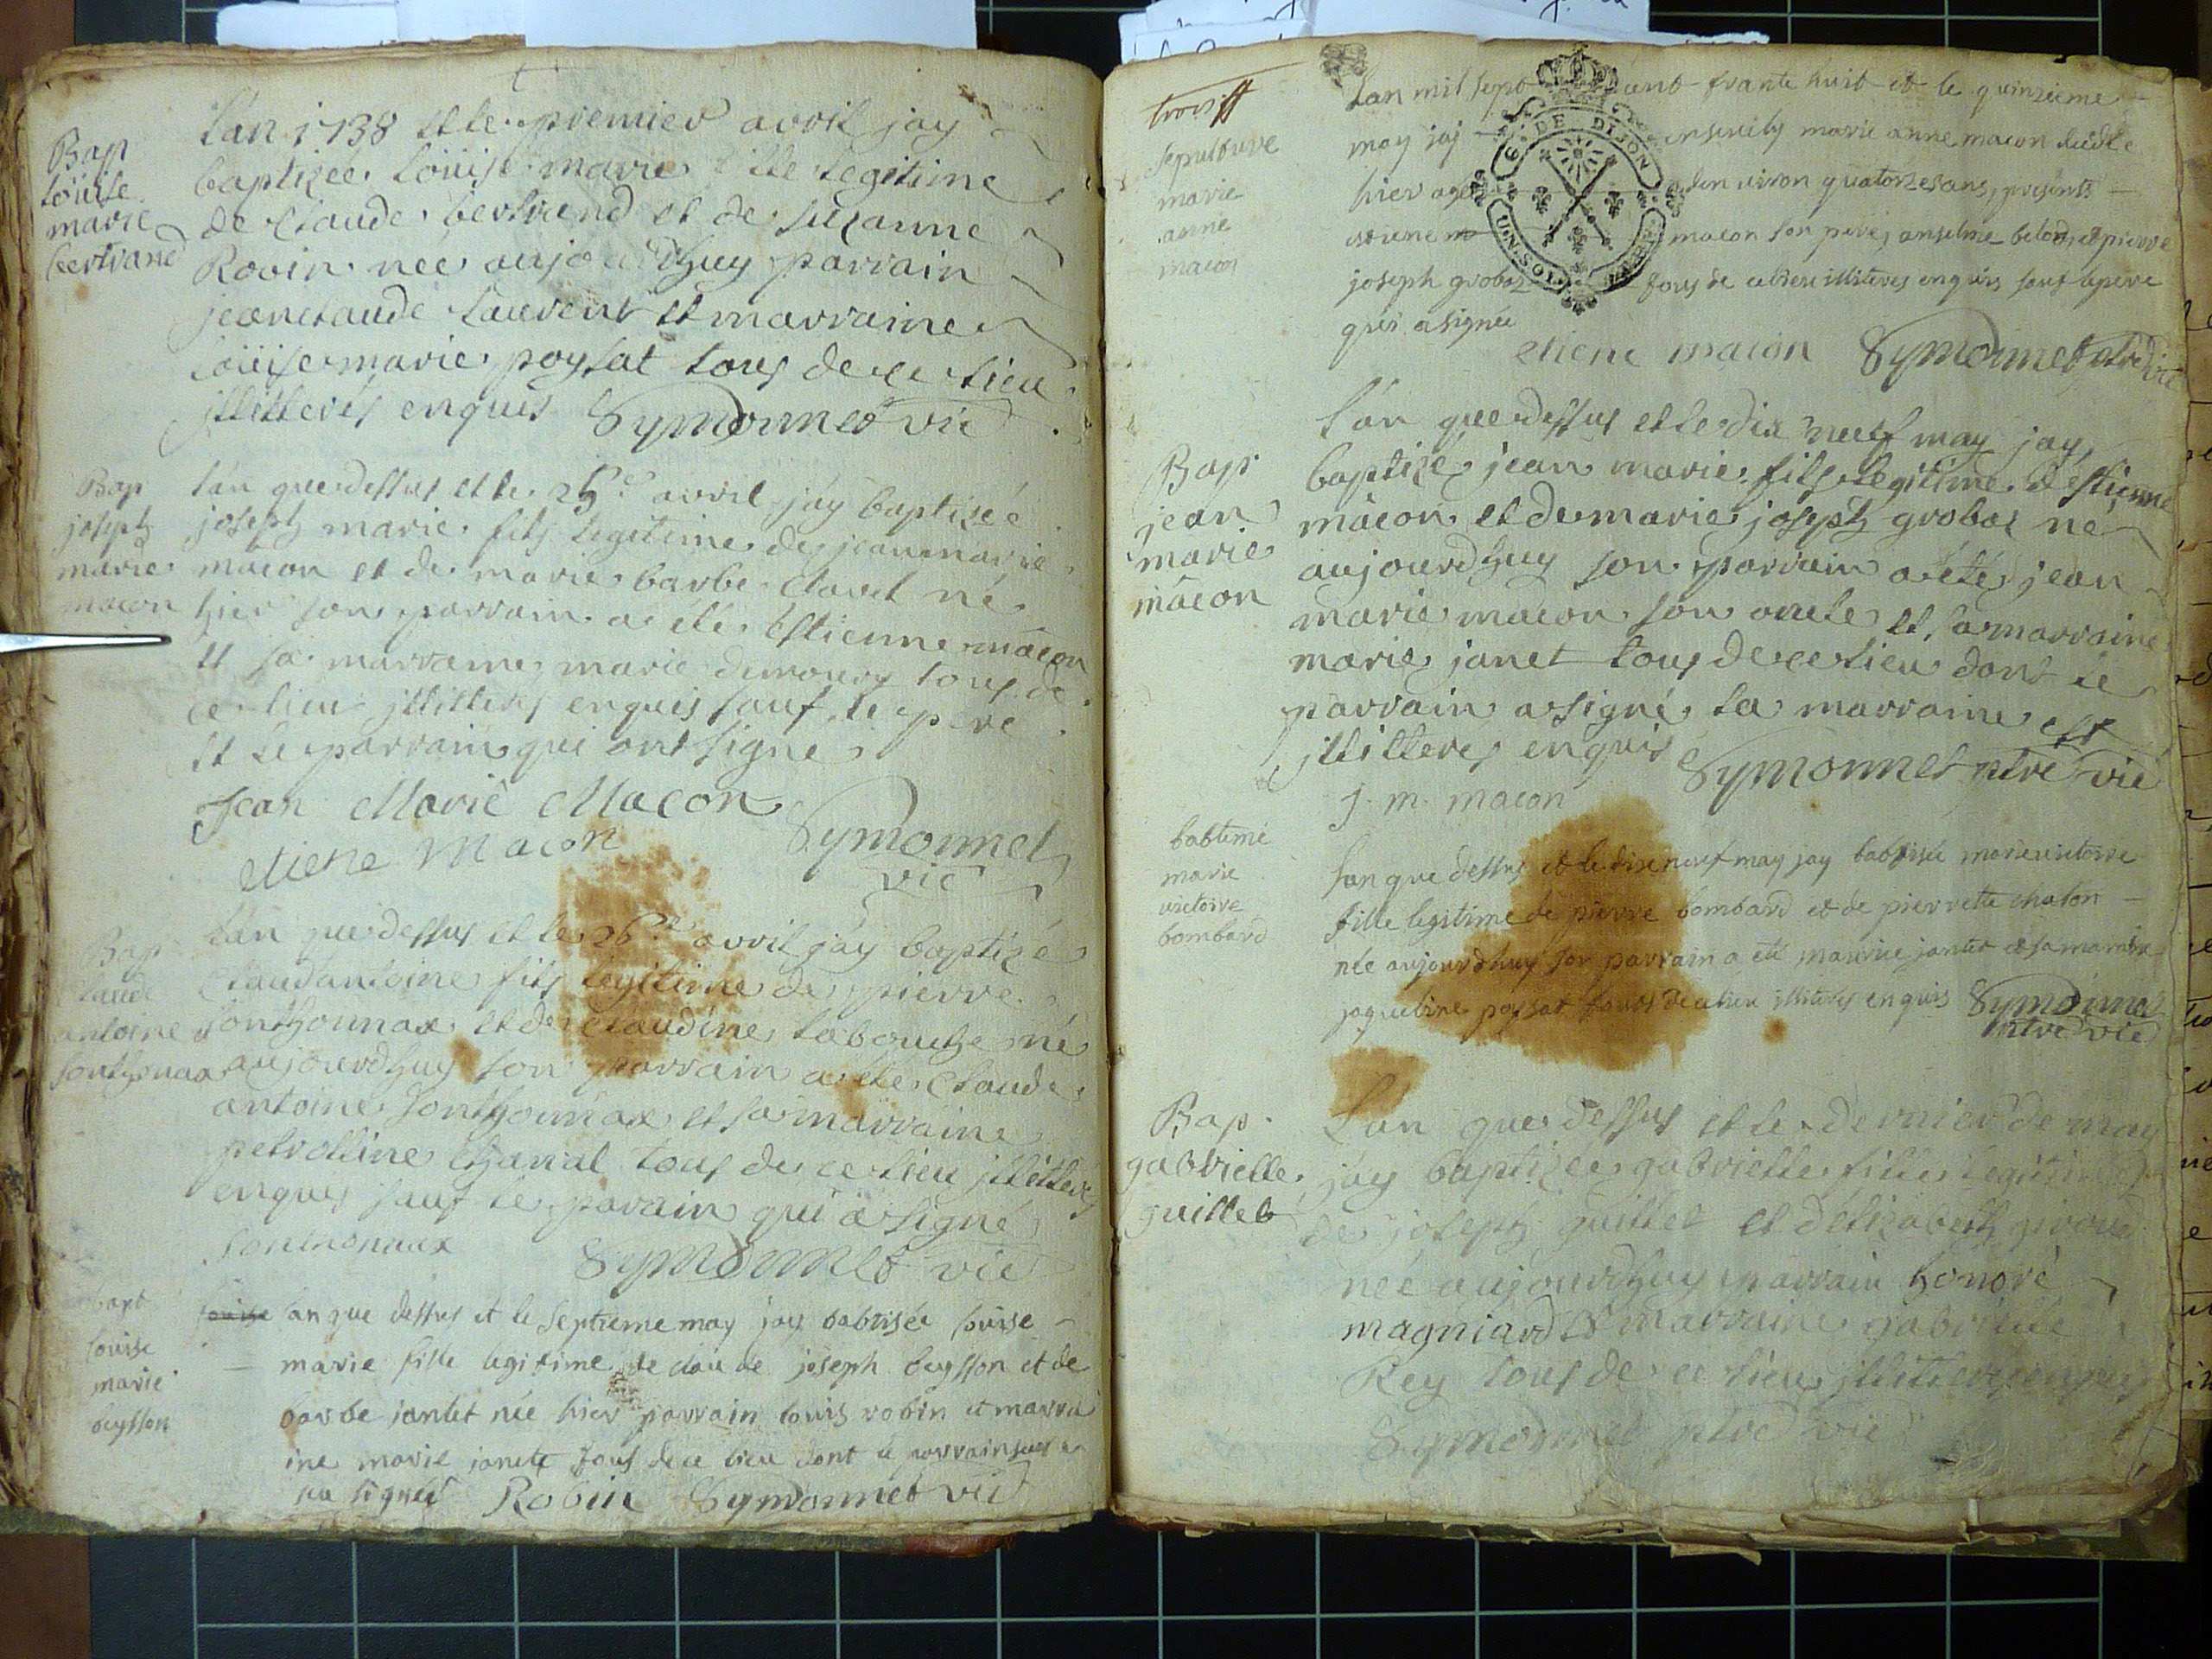 Bap
loüise
marie
bertrand
L'an 1738 et le premier avril jay
baptizée loüise marie fille legitime
de claude bertrand et de suzanne
Robin née aujourdhuy parrain
jean claude laurent et marraine
loüise marie poysat tous de ce lieu
jllitterés enquis Symonnet vic
Bap
joseph
marie
macon
l'an que dessus et le 25e avril jay baptizé
joseph marie fils legitime de jean marie
mâcon et de marie barbe clavel né
hier son parrain a été Estienne mâcon
et sa marraine marie demoury tous de
ce lieu jllitterés enquis sauf le pere
et le parrain qui ont signé
Jean Marie Macon
etiene macon Symonnet
vic
Bap
claude
antoine
sonthonax
L'an que dessus et le 26e avril jay baptizé
claud antoine fils legitime de pierre
sonthonnax et de claudine labouche né
aujourdhuy son parrain a été claude
antoine sonthonnax et sa marraine
petrolline chanal tous de ce lieu jllitterés
enquis sauf le parain qui a signé
sonthonnax Symonnet vic
bapt
louise
marie
beysson
lan que dessus et le septieme may jay babtisée louise
marie fille legitime de claude joseph beysson et de
barbe jantet née hier parrain louis robin et marra
ine marie janete tous de ce lieu dont le parrain seul
a signé Robin Symonnet vic
trois
sepulture
marie
anne
macon
Lan mil sept cent trante huit et le quinzieme
may jay inseveli marie anne macon decedée
hier agée denviron quatorze ans, presents
estiene macon son pere, anselme belod, et pierre
joseph groboz tous de ce lieu illiteres enquis sauf le pere
qui a signé
G. DE DIJON
UN SOL
etiene macon Symonnet ptre vic
L'an que dessus et le dix neuf may jay
Bap
jean
marie
mâcon
baptizé jean marie fils legitime d'estienne
mâcon et de marie joseph groboz né
aujourdhuy son parrain a été jean
marie macon son oncle et sa marraine
marie janet tous de ce lieu dont le
parrain a signé la marraine est
jllitteres enquis Symonnet ptre vic
J. m. macon
babteme
marie
victoire
bombard
Lan que dessus et le dix neuf may jay babtisée marie victoire
fille legitime de pierre bombard et de pierrette chalon
née aujourdhuy son parrain a été maurice jantet et sa marraine
jaqueline poysat tous de ce lieu illiterés enquis Symonnet
ptre vic
Bap
gabrielle
guillet
L'an que dessus et le dernier de may
jay baptizée gabrielle fille legitime
de joseph guillet et d'elizabeth giroud
née aujourdhuy parrain honoré
magniard et marraine gabrielle
Rey tous de ce lieu jllitterés enquis
Symonnet ptre vic